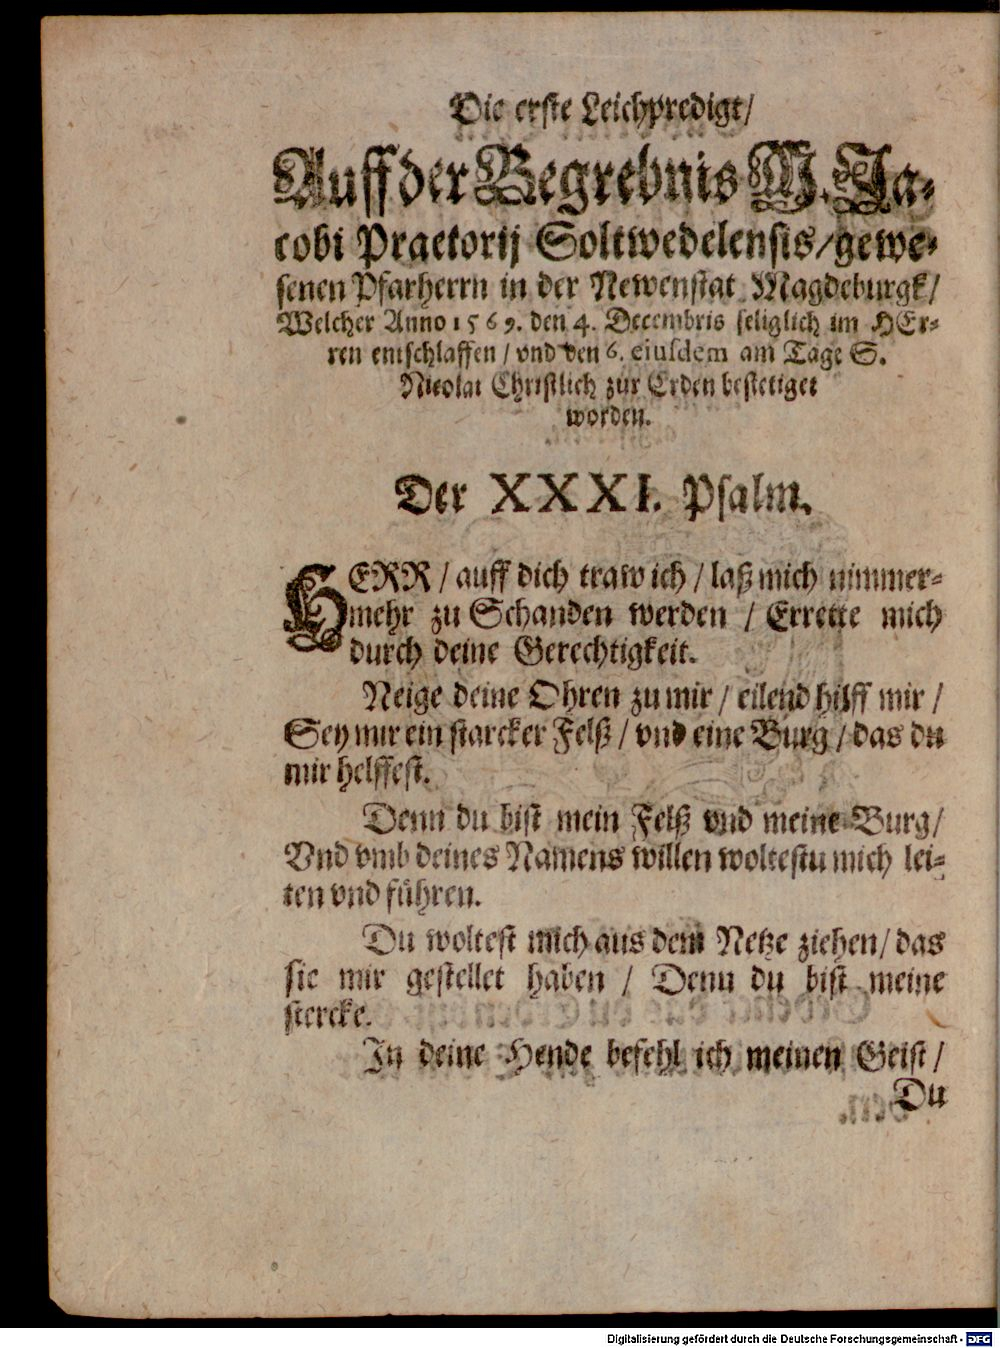 Die erste Leichpredigt/
Auff der Begrebnis M. Ja-
cobi Praetorij Soltwedelensis/gewe-
senen Pfarherrn in der Newenstat Magdeburgk/
Welcher Anno 1569. den 4. Decembris seliglich im HEr-
ren entschlaffen / vnd den 6. eiusdem am Tage S.
Nicolai Christlich zur Erden bestetiget
worden.
Der XXXI. Psalm.
HERR / auff dich traw ich / laß mich nimmer-
mehr zu Schanden werden / Errette mich
durch deine Gerechtigkeit.
Neige deine Ohren zu mir / eilend hilff mir /
Sey mir ein starcker Felß / vnd eine Burg / das du
mir helffest.
Denn du bist mein Felß vnd meine Burg/
Vnd vmb deines Namens willen woltestu mich lei-
ten vnd führen.
Du woltest mich aus dem Netze ziehen/ das
sie mir gestellet haben / Denn du bist meine
stercke.
In deine Hende befehl ich meinen Geist /
Du
Digitalisierung gefördert durch die Deutsche Forschungsgemeinschaft - DFG